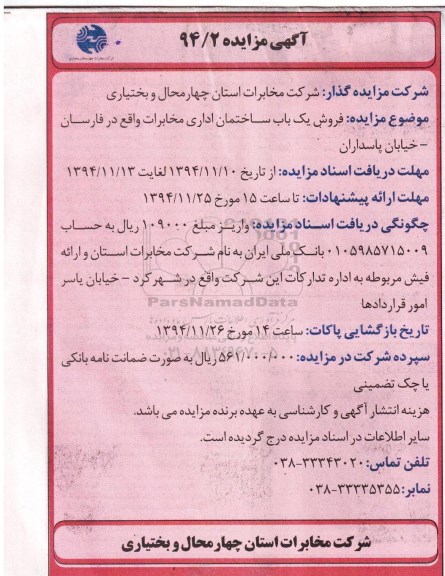 آگهی مزایده ۹۴/۲
شرکت مزایده گذار: شرکت مخابرات استان چهارمحال و بختیاری
موضوع مزایده: فروش یک باب ساختمان اداری مخابرات واقع در فارسان
– خیابان پاسداران
مهلت دریافت اسناد مزایده: از تاریخ ۱۳۹۴/۱۱/۱۰ لغایت ۱۳۹۴/۱۱/۱۳
مهلت ارائه پیشنهادات: تا ساعت ۱۵ مورخ ۱۳۹۴/۱۱/۲۵
چگونگی دریافت اسناد مزایده: واریز مبلغ ۱۰۹۰۰۰ ریال به حساب
۰۱۰۵۹۸۵۷۱۵۰۰۹ بانک ملی ایران به نام شرکت مخابرات استان و ارائه
فیش مربوطه به اداره تدارکات این شرکت واقع در شهرکرد – خیابان یاسر
امور قراردادها
ParsNamadData
تاریخ بازگشایی پاکات: ساعت ۱۴ مورخ ۱۳۹۴/۱۱/۲۶
سپرده شرکت در مزایده: ۵۶۱/۰۰۰/۰۰۰ ریال به صورت ضمانت نامه بانکی
یا چک تضمینی
هزینه انتشار آگهی و کارشناسی به عهده برنده مزایده می باشد.
سایر اطلاعات در اسناد مزایده درج گردیده است.
تلفن تماس: ۳۳۳۴۳۰۲۰-۰۳۸
نمابر: ۳۳۳۳۵۳۵۵-۰۳۸
شرکت مخابرات استان چهارمحال و بختیاری